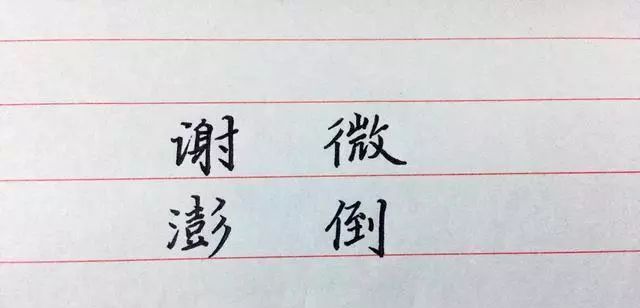 谢 微
澎 倒